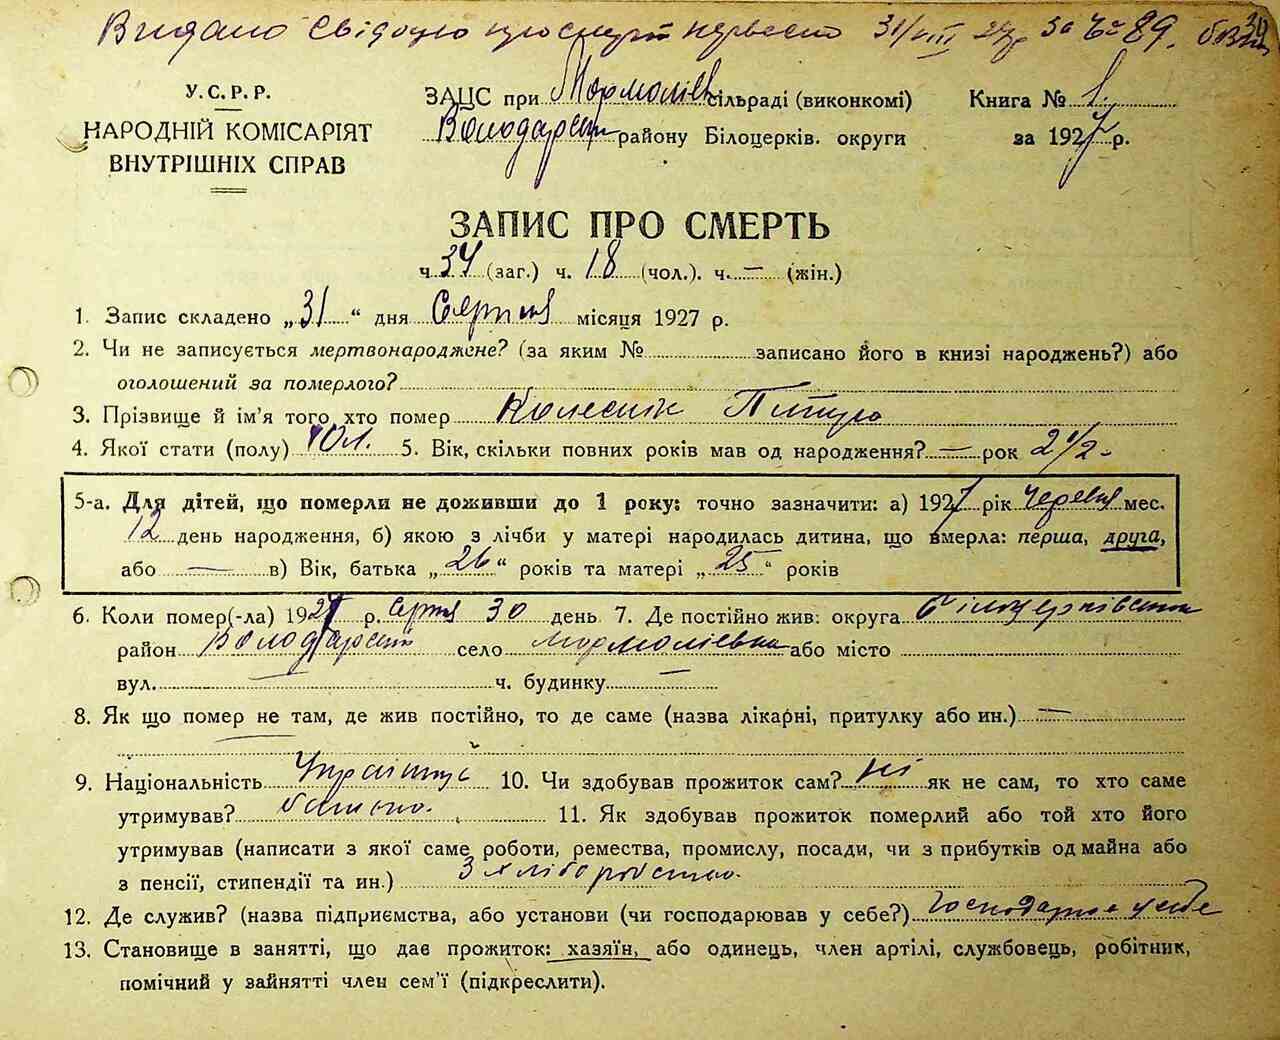 Видано свідоцтво про смерть первесно 31/VIII 27 р за № 89.
У.С.Р.Р.
НАРОДНІЙ КОМІСАРІЯТ
ВНУТРІШНІХ СПРАВ
ЗАЦС при Мормоліїв сільраді (виконкомі)
Володарськ району Білоцерків. округи
Книга № 1.
за 1927 р.
ЗАПИС ПРО СМЕРТЬ
ч. 34 (заг.) ч. 18 (чол.). ч. — (жін.)
1. Запис складено „31“ дня Серпня місяця 1927 р.
2. Чи не записується мертвонароджене? (за яким № записано його в книзі народжень?) або
оголошений за померлого?
3. Прізвище й ім'я того, хто помер Колесник
4. Якої стати (полу) чол. 5. Вік, скільки повних років мав од народження? — рок 2 1/2 -
5-а. Для дітей, що померли не доживши до 1 року: точно зазначити: а) 1927 рік Червня мес.
12 день народження, б) якою з лічби у матері народилась дитина, що вмерла: перша, друга,
або — в) Вік, батька „26“ років та матері „25“ років
6. Коли помер(-ла) 1927 р. Серпня 30 день 7. Де постійно жив: округа Білоцерківська
район Володарський село Мормоліївка або місто
вул. — ч. будинку —
8. Як що помер не там, де жив постійно, то де саме (назва лікарні, притулку або ин.) —
9. Національність Українец 10. Чи здобував прожиток сам? ні як не сам, то хто саме
утримував? батько. 11. Як здобував прожиток померлий або той хто його
утримував (написати з якої саме роботи, ремества, промислу, посади, чи з прибутків од майна або
з пенсії, стипендії та ин.) З хліборобства.
12. Де служив? (назва підприємства, або установи (чи господарював у себе?) Господарює у себе
13. Становище в занятті, що дає прожиток: хазяїн, або одинець, член артілі, службовець, робітник,
помічний у зайнятті член сем'ї (підкреслити).